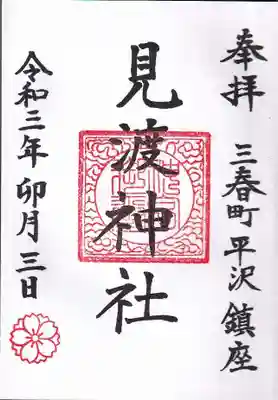 奉拝
三春町平沢鎮座
見渡神社
令和三年卯月三日